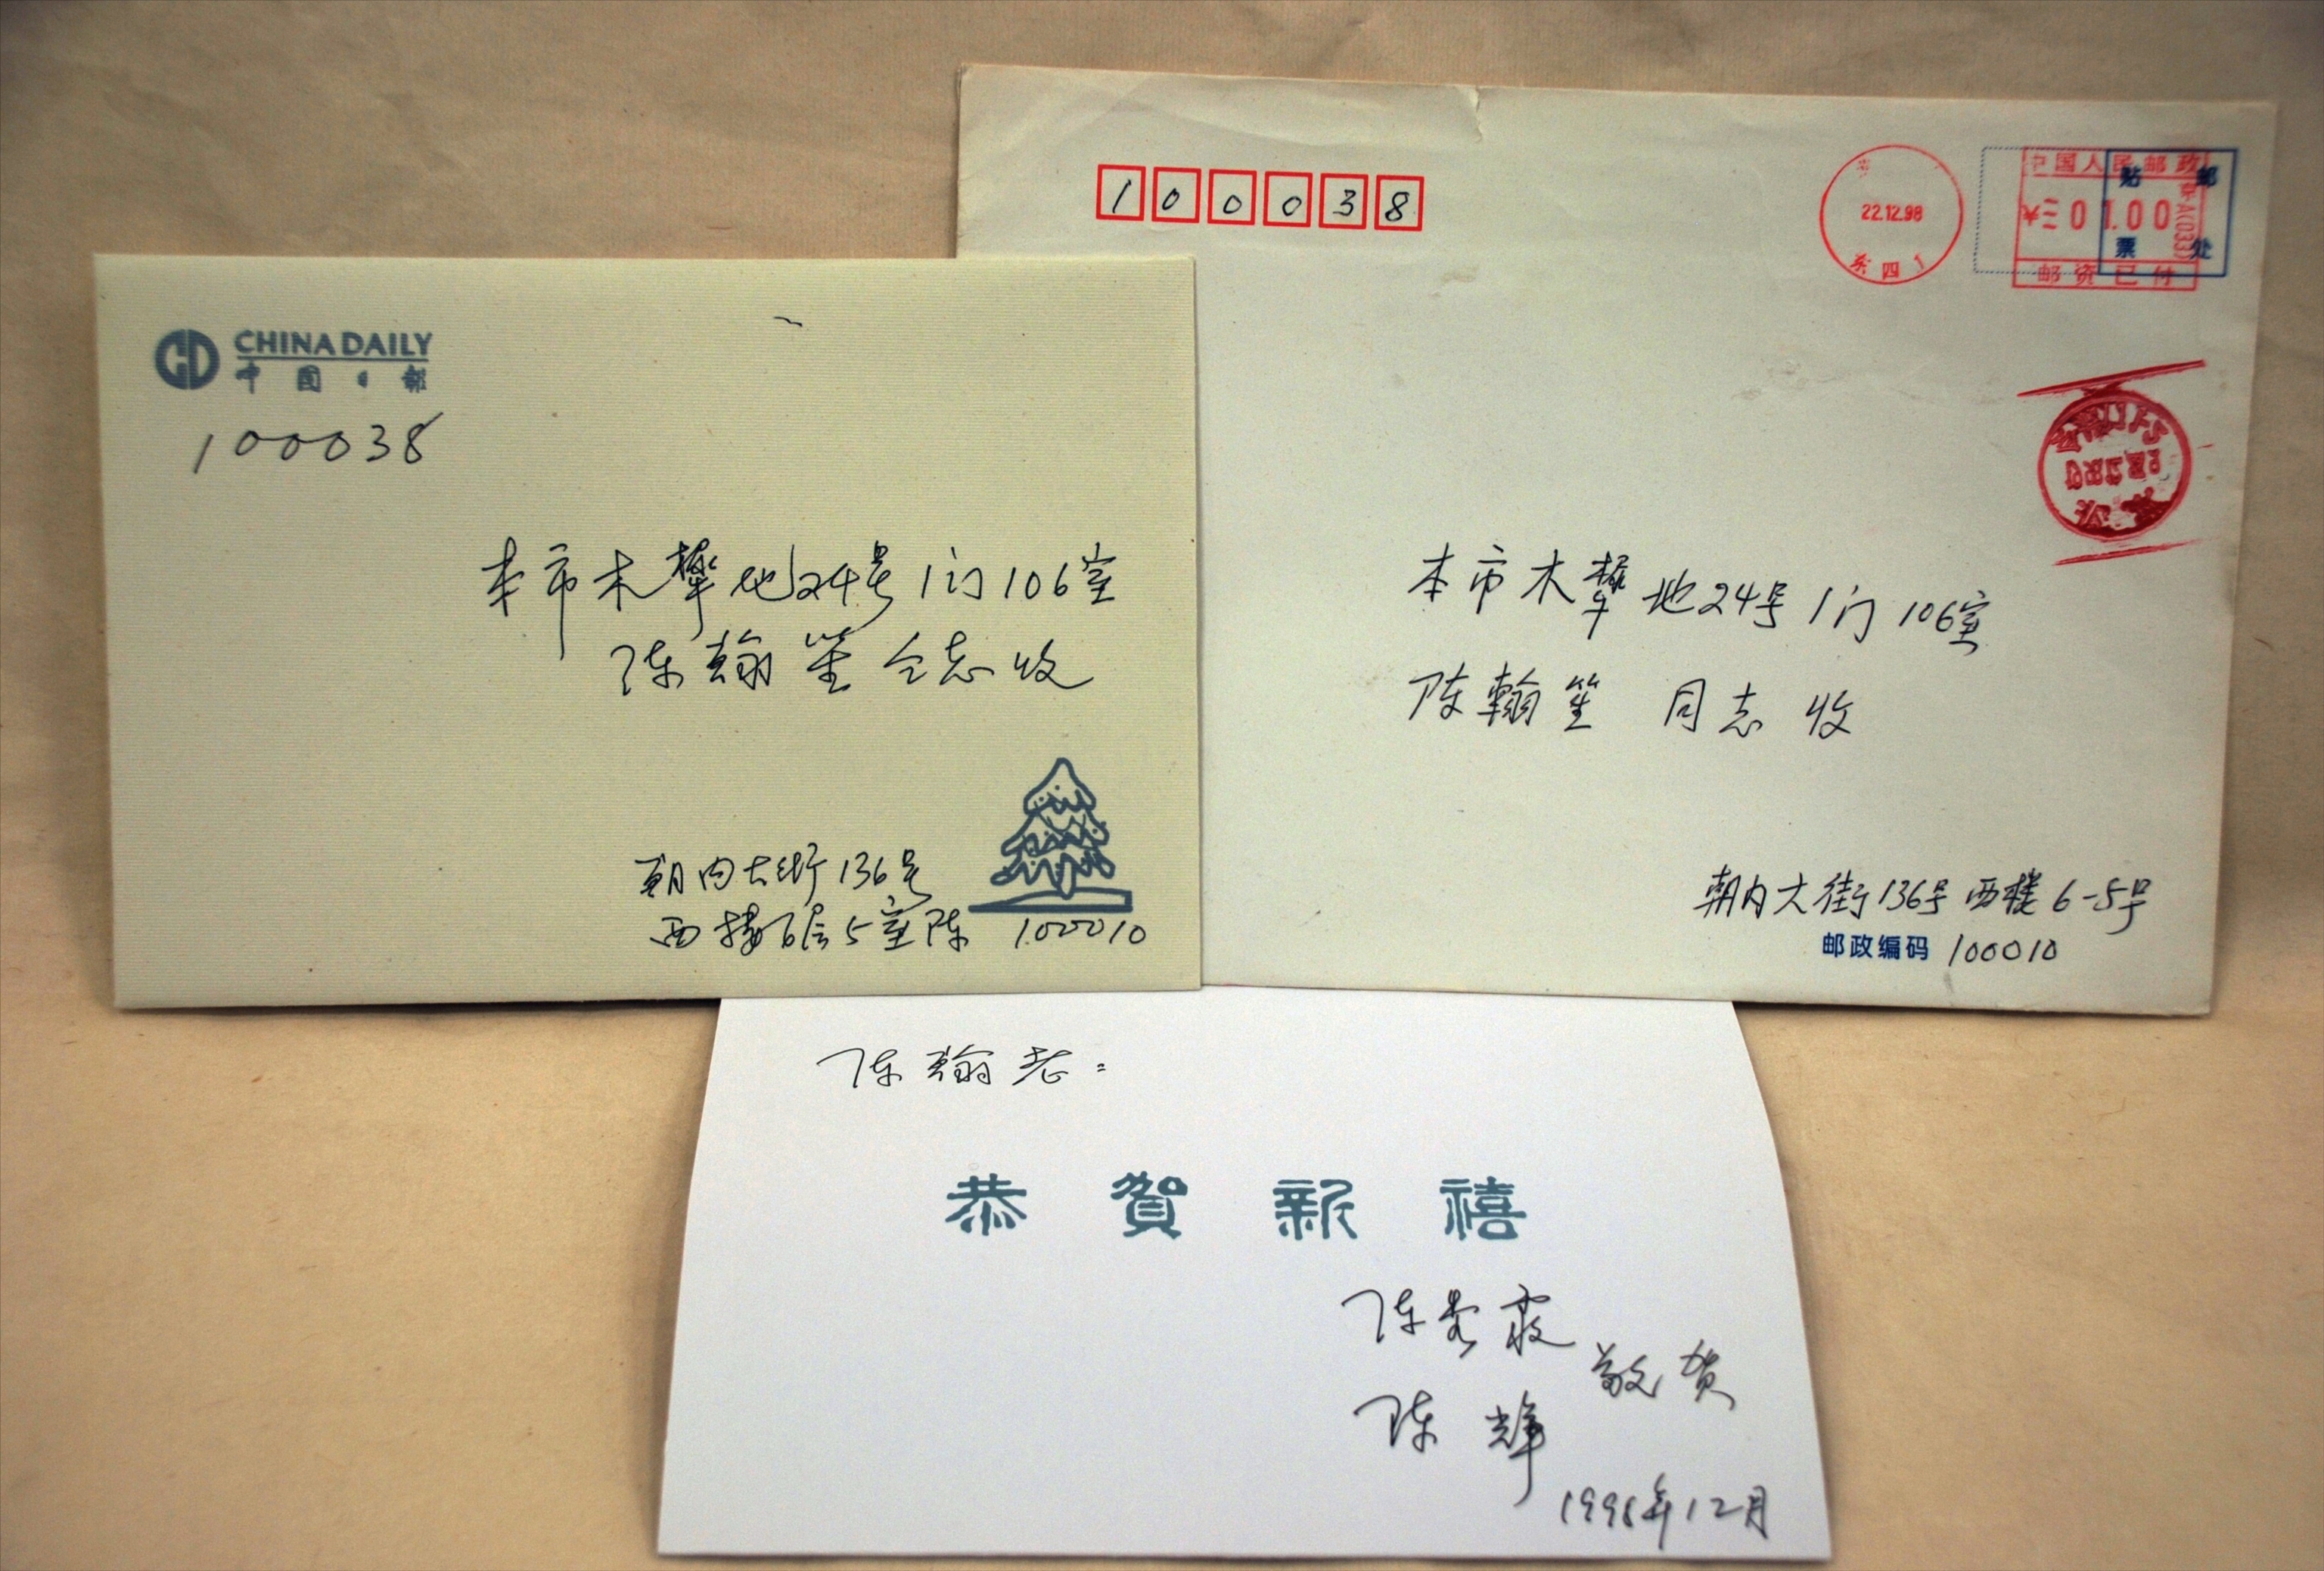 CHINA DAILY
中国日报
100038
本市木樨地24号1门106室
陈翰笙仝志收
朝内大街136号
西楼6层5室陈 100010
100038
22.12.98
东四
中国人民邮政
¥ 01.00
邮资已付
贴邮
票处
本市木樨地24号1门106室
陈翰笙 同志 收
朝内大街136号西楼6-5号
邮政编码 100010
陈翰老:
恭贺新禧
陈秀霞
陈辉
敬贺
1998年12月